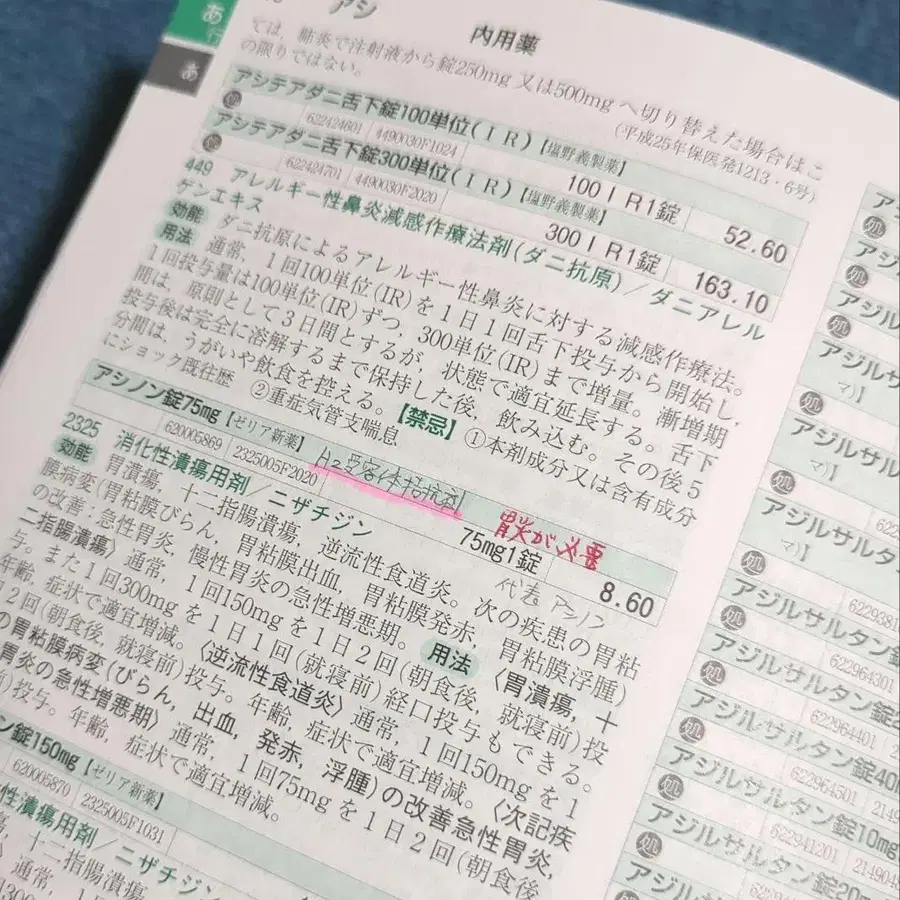 あ行
あ
アシ
内用薬
ては，肺炎で注射液から錠250mg 又は500mg へ切り替えた場合はこ
の限りではない。
(平成25年保医発1213・6号)
アシテアダニ舌下錠100単位(IR)【塩野義製薬】
処 622424601 4490030F1024 100IR1錠 52.60
アシテアダニ舌下錠300単位(IR)【塩野義製薬】
処 622424701 4490030F2020 300IR1錠 163.10
449 アレルギー性鼻炎減感作療法剤(ダニ抗原)／ダニアレル
ゲンエキス
効能 ダニ抗原によるアレルギー性鼻炎に対する減感作療法。
用法 通常，1回100単位(IR)を1日1回舌下投与から開始し，
1回投与量は100単位(IR)ずつ，300単位(IR)まで増量。漸増期
間は，原則として3日間とするが，状態で適宜延長する。舌下
投与後は完全に溶解するまで保持した後，飲み込む。その後5
分間は，うがいや飲食を控える。【禁忌】①本剤成分又は含有成分
にショック既往歴 ②重症気管支喘息
アシノン錠75mg【ゼリア新薬】
H2受容体拮抗剤
胃炎が必要
620005869 2325005F2020 75mg1錠 8.60
代表 アシノン
2325 消化性潰瘍用剤／ニザチジン
効能 胃潰瘍，十二指腸潰瘍，逆流性食道炎。次の疾患の胃粘
膜病変(胃粘膜びらん，胃粘膜出血，胃粘膜発赤，胃粘膜浮腫)
の改善：急性胃炎，慢性胃炎の急性増悪期。 用法 〈胃潰瘍，十
二指腸潰瘍〉通常，1回150mgを1日2回(朝食後，就寝前)投
与。また1回300mgを1日1回(就寝前)経口投与もできる。
年齢，症状で適宜増減。〈逆流性食道炎〉通常，1回150mgを1
2回(朝食後，就寝前)投与。年齢，症状で適宜増減。〈次記疾
の胃粘膜病変(びらん，出血，発赤，浮腫)の改善急性胃炎，
胃炎の急性増悪期〉通常，1回75mgを1日2回(朝食後
)投与。年齢，症状で適宜増減。
ン錠150mg【ゼリア新薬】
620005870 2325005F1031
性潰瘍用剤／ニザチジン
，十二指腸潰瘍
通常，1回
アジ
アジル
アジルサ
マ)】
アジルサ
マ)】
アジルサル
マ)】
アジルサルタ
マ)】
アジルサルタン
処 6229381
アジルサルタン錠
処 622964301
アジルサルタン錠2
処 622964401
アジルサルタン錠40m
処 622964501 2149
アジルサルタン錠10mg
処 622941201 2149048
アジルサルタン錠20m